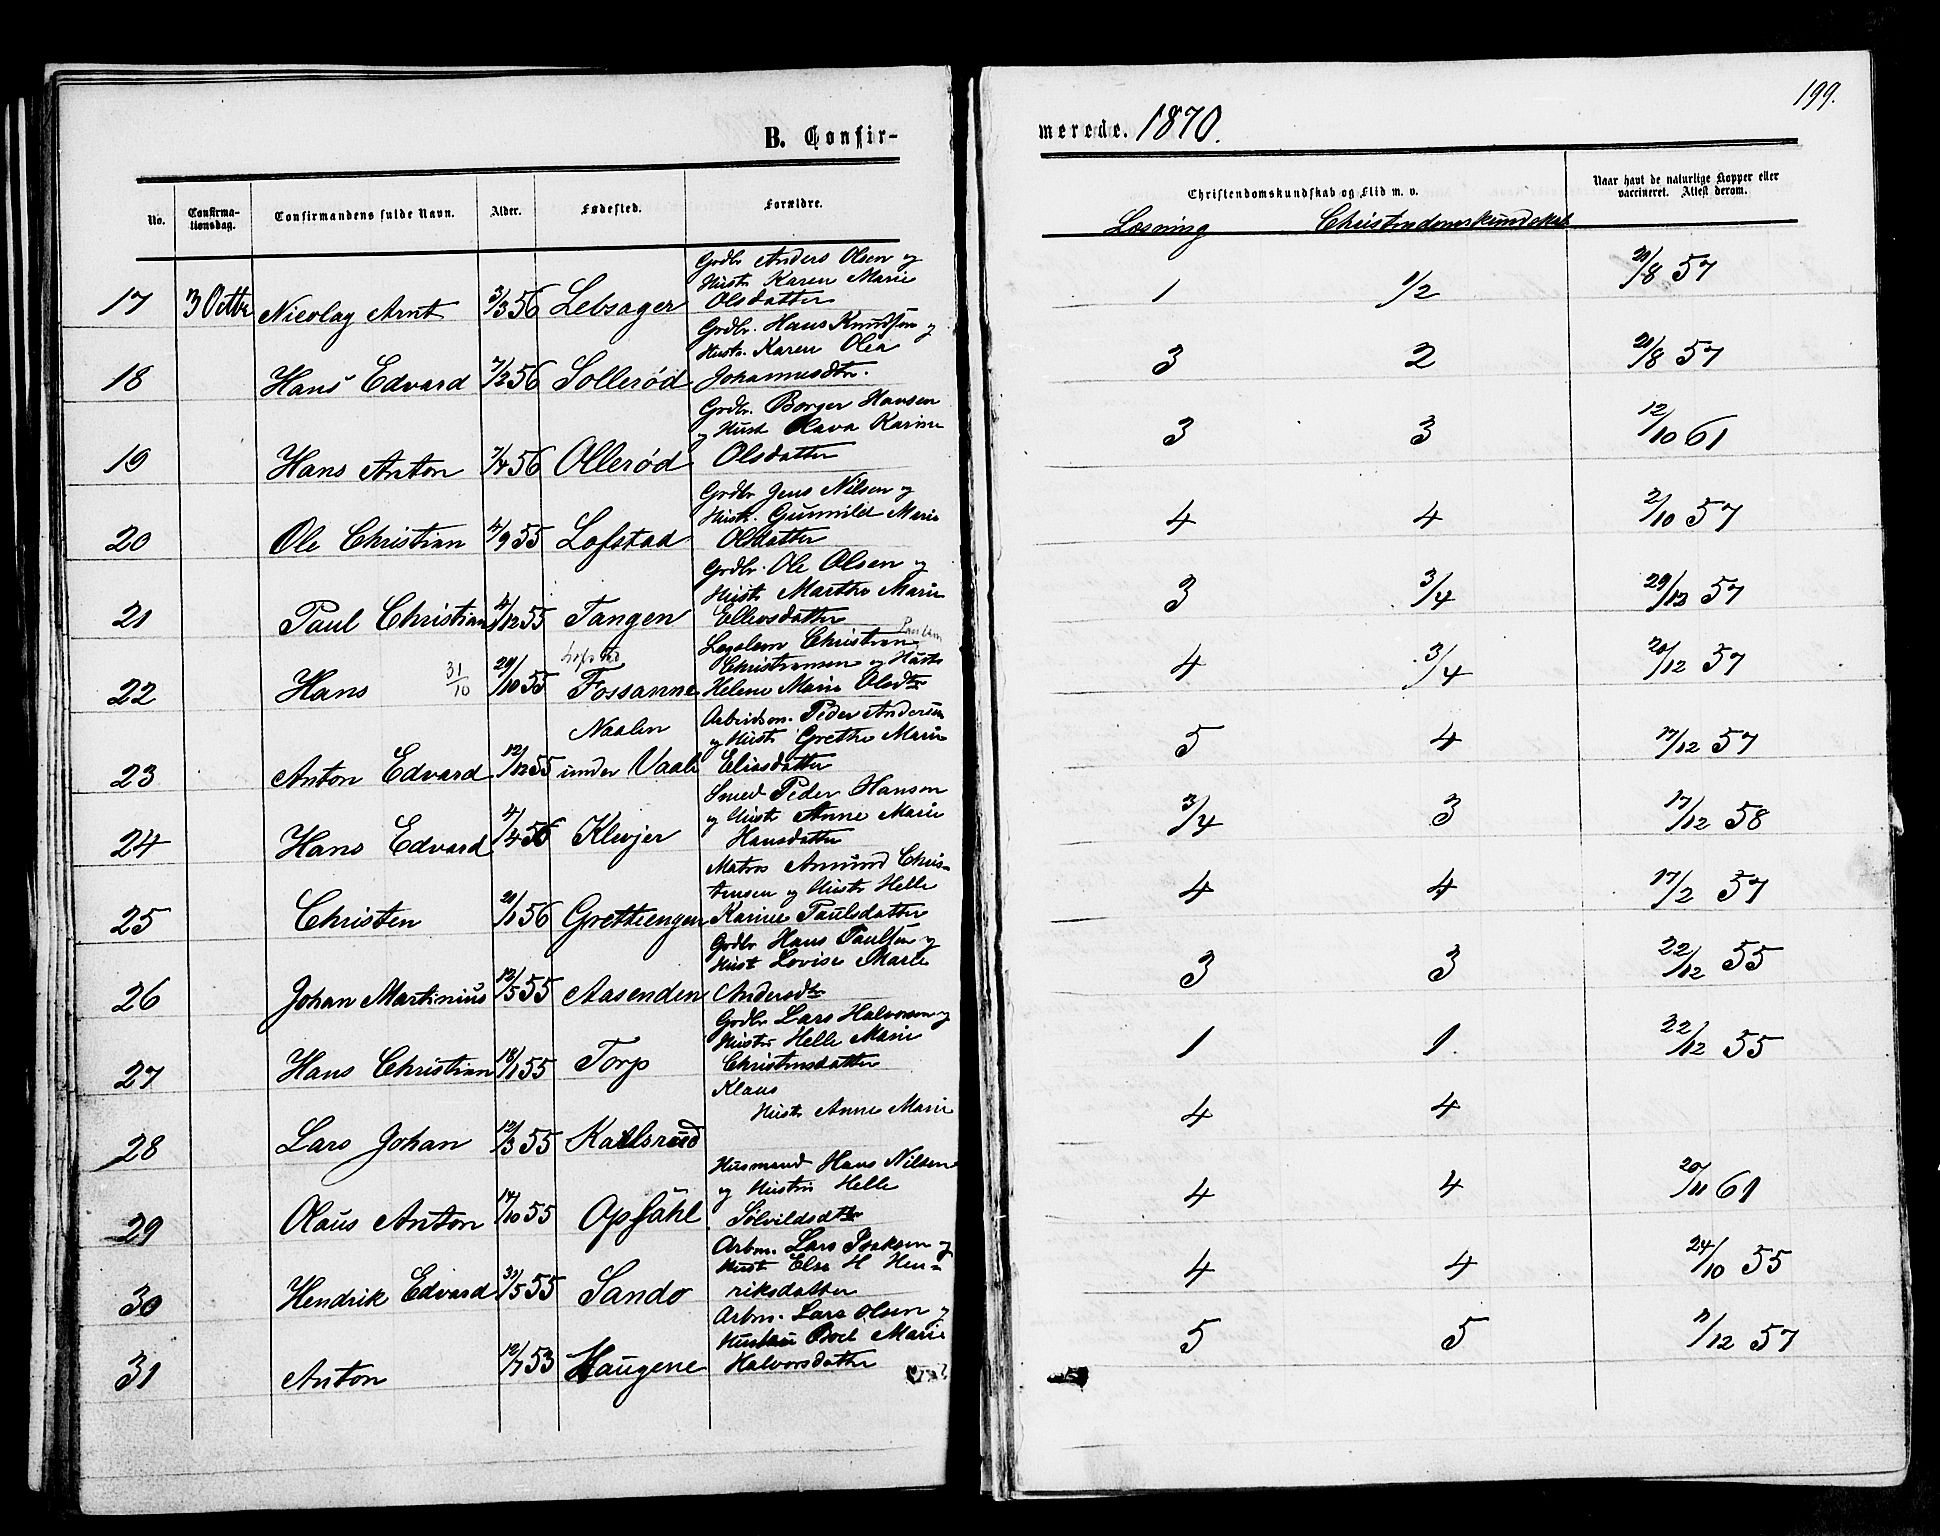 199.
B. Confir-
merede. 1870.
No.
Confirma-
tionsdag.
Confirmandens fulde Navn.
Alder.
Fødested.
Forældre.
Christendomskundskab og Flid m. v.
Læsning
Christendomskundskab
Naar havt de naturlige Kopper eller
vaccineret. Attest derom.
Grdbr Anders Olsen og
Hustr Karen Marie
17 3 Octbr Nicolay Arnt 3/3 56 Lebsager Olsdatter 1 1/2 21/8 57
Grdbr. Hans Knudsen og
Hustr. Karen Olea
18 Hans Edvard 7/2 56 Sollerød Johannesdtr. 3 2 21/8 57
Grdbr. Borger Hansen
og Hust Olava Karine
19 Hans Anton 7/4 56 Ollerød Olsdatter 3 3 12/10 61
Grdbr Jens Nilsen og
Hustr. Gunnild Marie
20 Ole Christian 4/9 55 Lofstad Olsdatter 4 4 2/10 57
Grdbr. Ole Olsen og
Hustr Marthe Marie
21 Paul Christian 4/12 55 Tangen Ellevsdatter 3 3/4 29/12 57
Lofstad
Logslem Christian Paulsen
Christiansen og Hustr
22 Hans 31/10 29/10 55 Fossanne Helene Marie Olsdtr 4 3/4 20/12 57
Naalen
Arbeidsm. Peder Andersen
og Hustr Grethe Marie
23 Anton Edvard 12/12 55 under Vaale Eliasdatter 5 4 17/12 57
Smed Peder Hansen
og Hustr Anne Marie
24 Hans Edvard 4/4 56 Klevjer Hansdatter 3/4 3 17/12 58
Matros Amund Chris-
tensen og Hustr Helle
25 Christen 21/1 56 Grettiengen Karine Paulsdatter 4 4 17/2 57
Grdbr Hans Paulsen og
Hust Lovise Marie
26 Johan Martinius 12/5 55 Aasenden Andersdtr 3 3 22/12 55
Grdbr Lars Halvorsen og
Hustr Helle Marie
27 Hans Christian 18/1 55 Torp Christensdatter 1 1. 22/12 55
Klaus
Hustr Anne Marie
28 Lars Johan 12/3 55 Karlsrud 4 4
Husmand Hans Nilsen
og Hustru Helle
29 Olaus Anton 14/10 55 Opsahl Sølvildsdtr 4 4 20/11 61
Arbm. Lars Isaksen og
Hustr Else H Hen-
30 Hendrik Edvard 31/5 55 Sando riksdatter 4 4 24/10 55
Arbm. Lars Olsen og
Hustru Boel Marie
31 Anton 12/7 53 Haugene Halvorsdatter 5 5 11/12 57